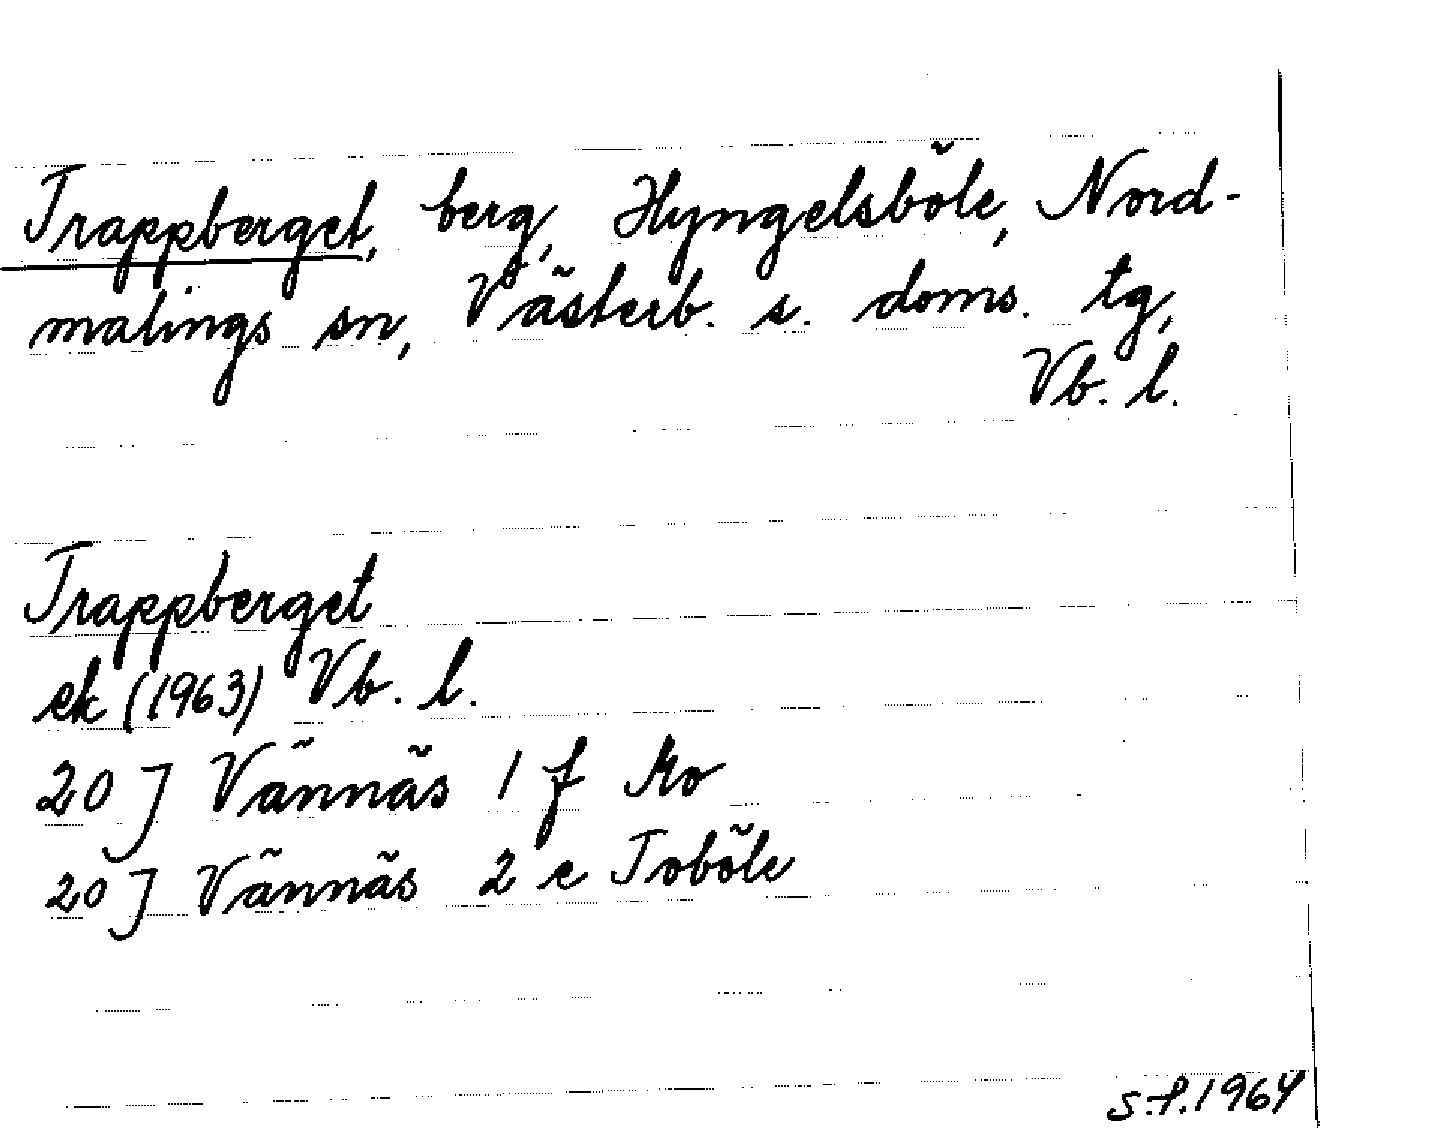 Trappberget, berg, Hyngelsböle, Nord-
malings sn, Västerb. s. doms. tg,
Vb. l.
Trappberget
ek (1963) Vb. l.
20 J Vännäs 1 f Mo
20 J Vännäs 2 e Toböle
S.f. 1964